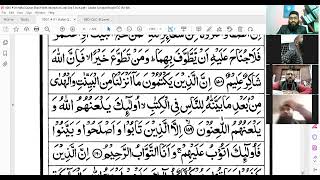 فَلَا جُنَاحَ عَلَيْهِ اَنْ يَّطَّوَّفَ بِهِمَا ؕ وَمَنْ تَطَوَّعَ خَيْرًا ۙ فَاِنَّ اللّٰهَ
شَاكِرٌ عَلِيْمٌ ﴿۱۵۸﴾ اِنَّ الَّذِيْنَ يَكْتُمُوْنَ مَاۤ اَنْزَلْنَا مِنَ الْبَيِّنٰتِ وَالْهُدٰى
مِنْۢ بَعْدِ مَا بَيَّنّٰهُ لِلنَّاسِ فِى الْكِتٰبِ ۙ اُولٰٓئِكَ يَلْعَنُهُمُ اللّٰهُ وَ
يَلْعَنُهُمُ اللّٰعِنُوْنَ ﴿۱۵۹﴾ اِلَّا الَّذِيْنَ تَابُوْا وَاَصْلَحُوْا وَبَيَّنُوْا
فَاُولٰٓئِكَ اَتُوْبُ عَلَيْهِمْ ۚ وَاَنَا التَّوَّابُ الرَّحِيْمُ ﴿۱۶۰﴾ اِنَّ الَّذِيْنَ